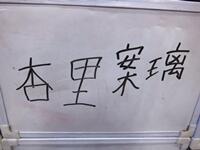 杏里案璃